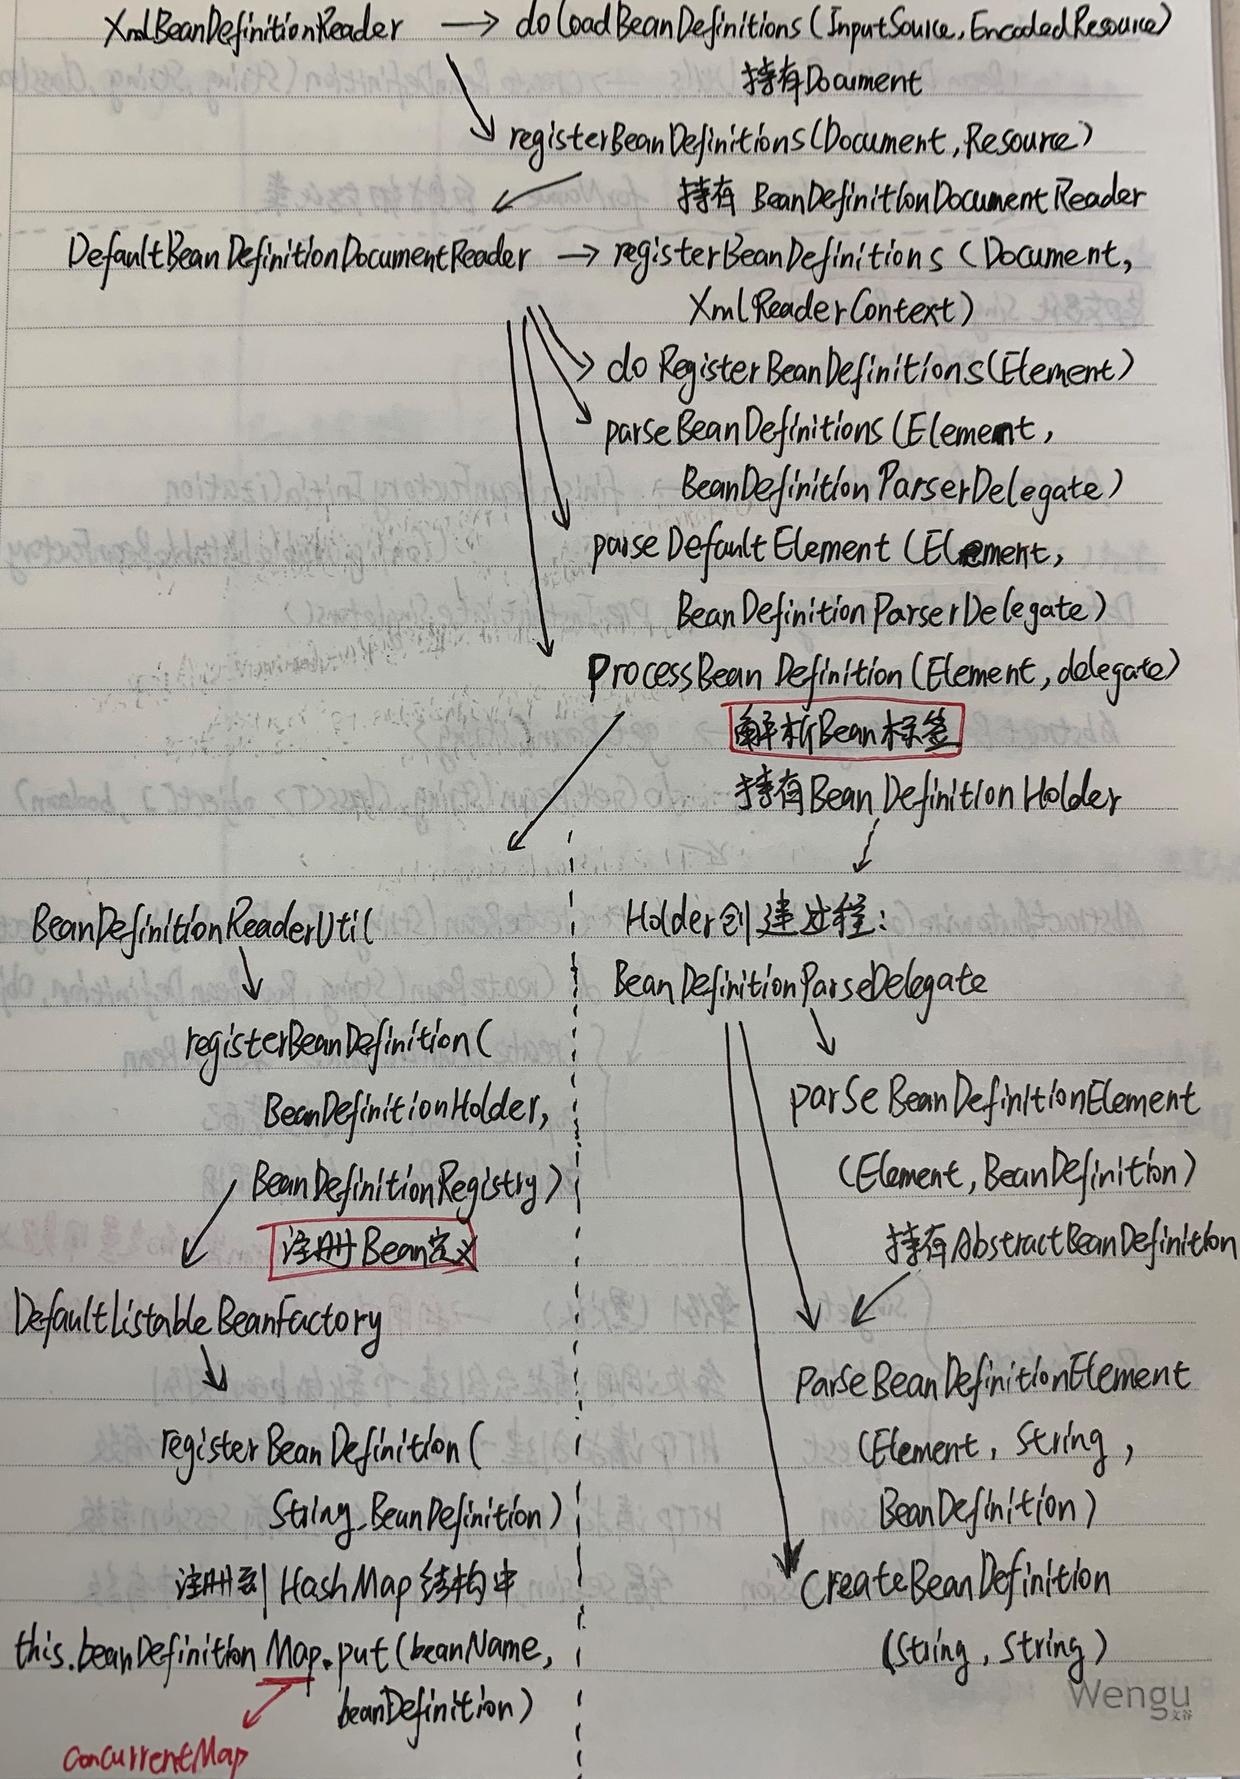 XmlBeanDefinitionReader → doLoadBeanDefinitions(InputSource, EncodedResource)
持有Document
registerBeanDefinitions(Document, Resource)
持有 BeanDefinitionDocumentReader
DefaultBeanDefinitionDocumentReader → registerBeanDefinitions (Document,
XmlReaderContext)
doRegisterBeanDefinitions(Element)
parseBeanDefinitions(Element,
BeanDefinitionParserDelegate)
parseDefaultElement(Element,
BeanDefinitionParserDelegate)
ProcessBeanDefinition(Element, delegate)
解析Bean标签
持有BeanDefinitionHolder
BeanDefinitionReaderUtil
registerBeanDefinition(
BeanDefinitionHolder,
BeanDefinitionRegistry)
注册Bean定义
DefaultListableBeanFactory
registerBeanDefinition(
String, BeanDefinition)
注册到HashMap结构中
this.beanDefinitionMap.put(beanName,
beanDefinition)
ConcurrentMap
Holder创建过程:
BeanDefinitionParseDelegate
parseBeanDefinitionElement
(Element, BeanDefinition)
持有AbstractBeanDefinition
ParseBeanDefinitionElement
(Element, String,
BeanDefinition)
CreateBeanDefinition
(String, String)
Wengu
文谷